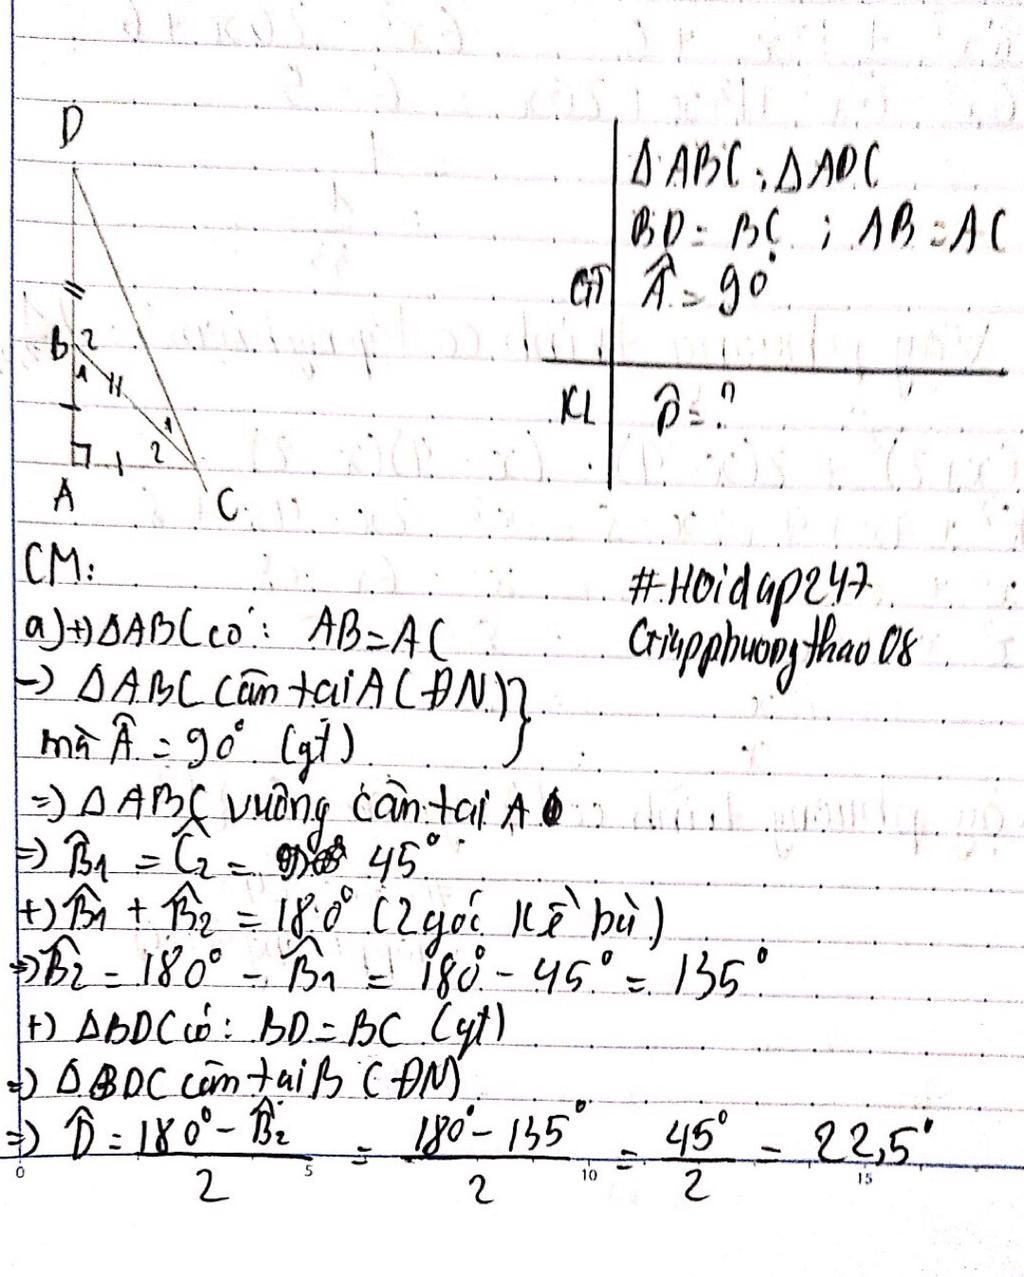 D
B 2
1
1
2
A
C
ΔABC ; ΔADC
BD = BC ; AB = AC
GT Â = 90°
KL D̂ = ?
CM:
#Hoidap247
a) +) ΔABC có : AB = AC
=> ΔABC cân tại A (ĐN) }
mà Â = 90° (gt)
=> ΔABC vuông cân tại A
=> B̂1 = Ĉ2 = 45°
+) B̂1 + B̂2 = 180° (2 góc kề bù)
=> B̂2 = 180° - B̂1 = 180° - 45° = 135°
+) ΔBDC có : BD = BC (gt)
=> ΔBDC cân tại B (ĐN)
=> D̂ = (180° - B̂2)/2 = (180° - 135°)/2 = 45°/2 = 22,5°
0 5 10 15